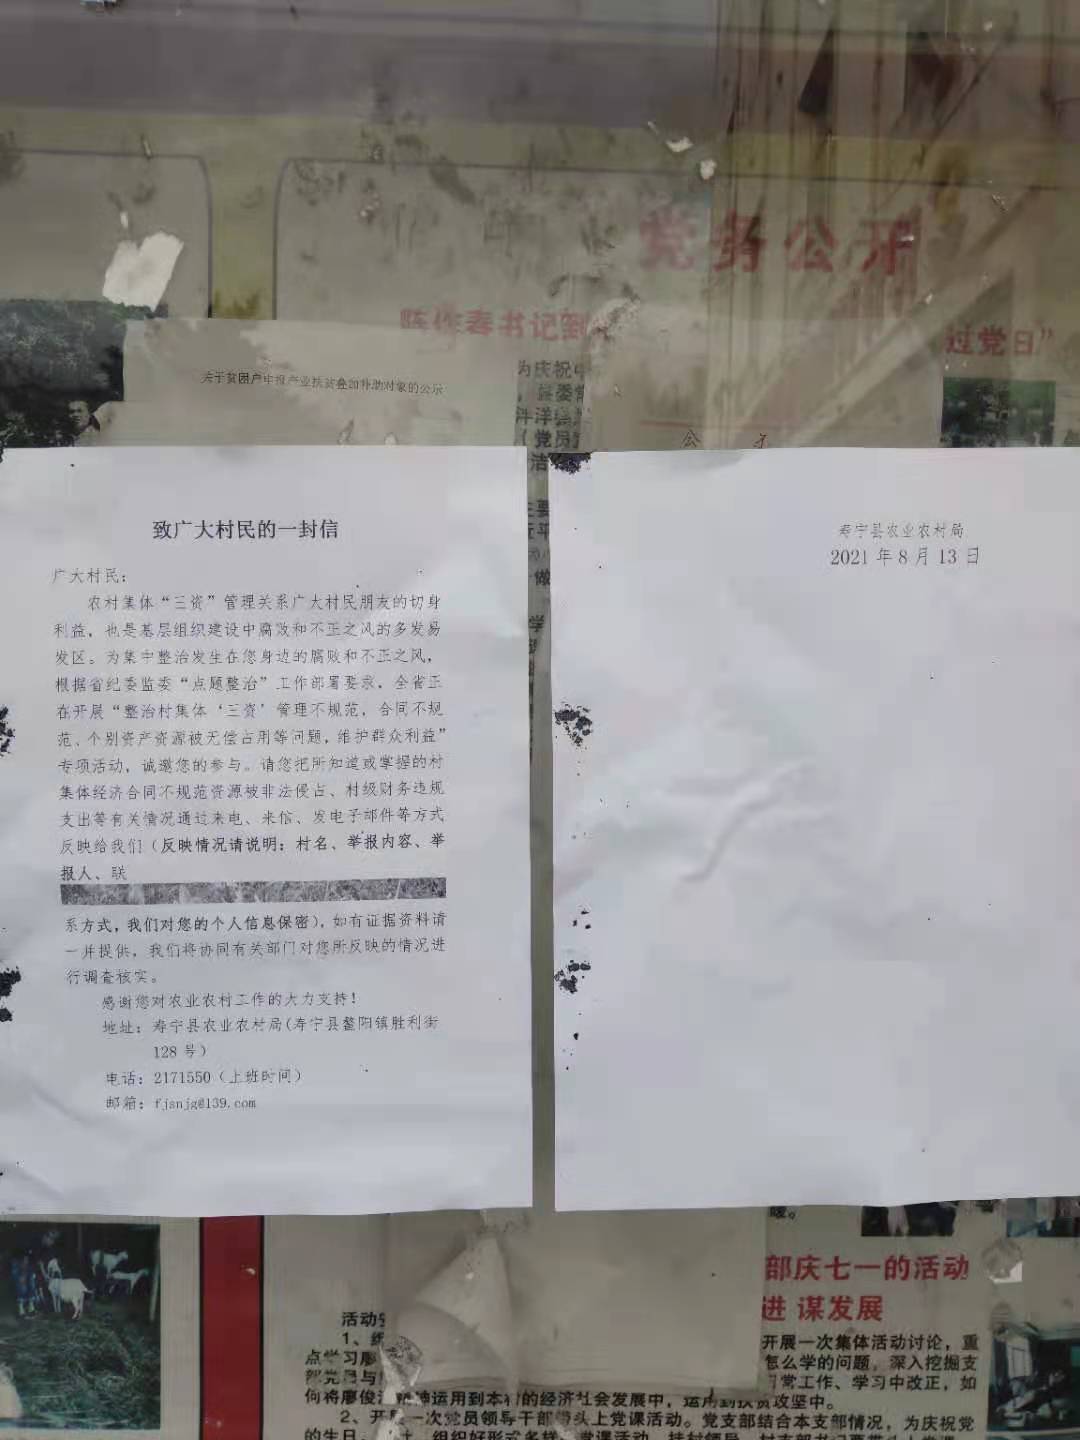 党务公开
陈作春书记到
过党日”
关于贫困户申报产业扶贫叠加补助对象的公示
为庆祝中
县委常
（党员
洁
公 示
致广大村民的一封信
广大村民：
农村集体“三资”管理关系广大村民朋友的切身
利益，也是基层组织建设中腐败和不正之风的多发易
发区。为集中整治发生在您身边的腐败和不正之风，
根据省纪委监委“点题整治”工作部署要求，全省正
在开展“整治村集体‘三资’管理不规范，合同不规
范、个别资产资源被无偿占用等问题，维护群众利益”
专项活动，诚邀您的参与。请您把所知道或掌握的村
集体经济合同不规范资源被非法侵占、村级财务违规
支出等有关情况通过来电、来信、发电子邮件等方式
反映给我们（反映情况请说明：村名、举报内容、举
报人、联
系方式，我们对您的个人信息保密），如有证据资料请
一并提供，我们将协同有关部门对您所反映的情况进
行调查核实。
感谢您对农业农村工作的大力支持！
地址：寿宁县农业农村局（寿宁县鳌阳镇胜利街
128 号）
电话：2171550（上班时间）
邮箱：fjsnjg@139.com
寿宁县农业农村局
2021 年 8 月 13 日
部庆七一的活动
进 谋发展
活动
1、
开展一次集体活动讨论，重
点学习廖
怎么学的问题，深入挖掘支
部党员与
常工作、学习中改正，如
何将廖俊
神运用到本村的经济社会发展中，运用到扶贫攻坚中。
2、开展一次党员领导干部带头上党课活动。党支部结合本支部情况，为庆祝党
的生日，